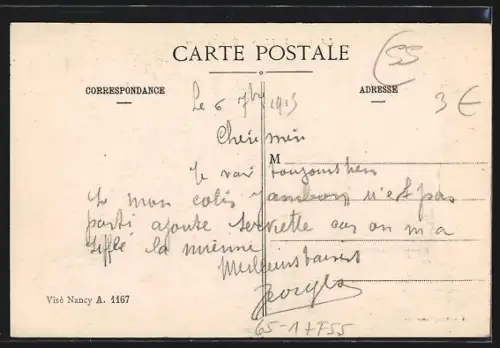 CARTE POSTALE
55
CORRESPONDANCE
ADRESSE
3 €
Le 6 7bre 1915
Cheri mien
M
Je vais toujours bien
Si mon colis jambon n'est pas
parti ajoute serviette car on m'a
sifflé la mienne
Meilleurs baisers
Georges
Visé Nancy A. 1167